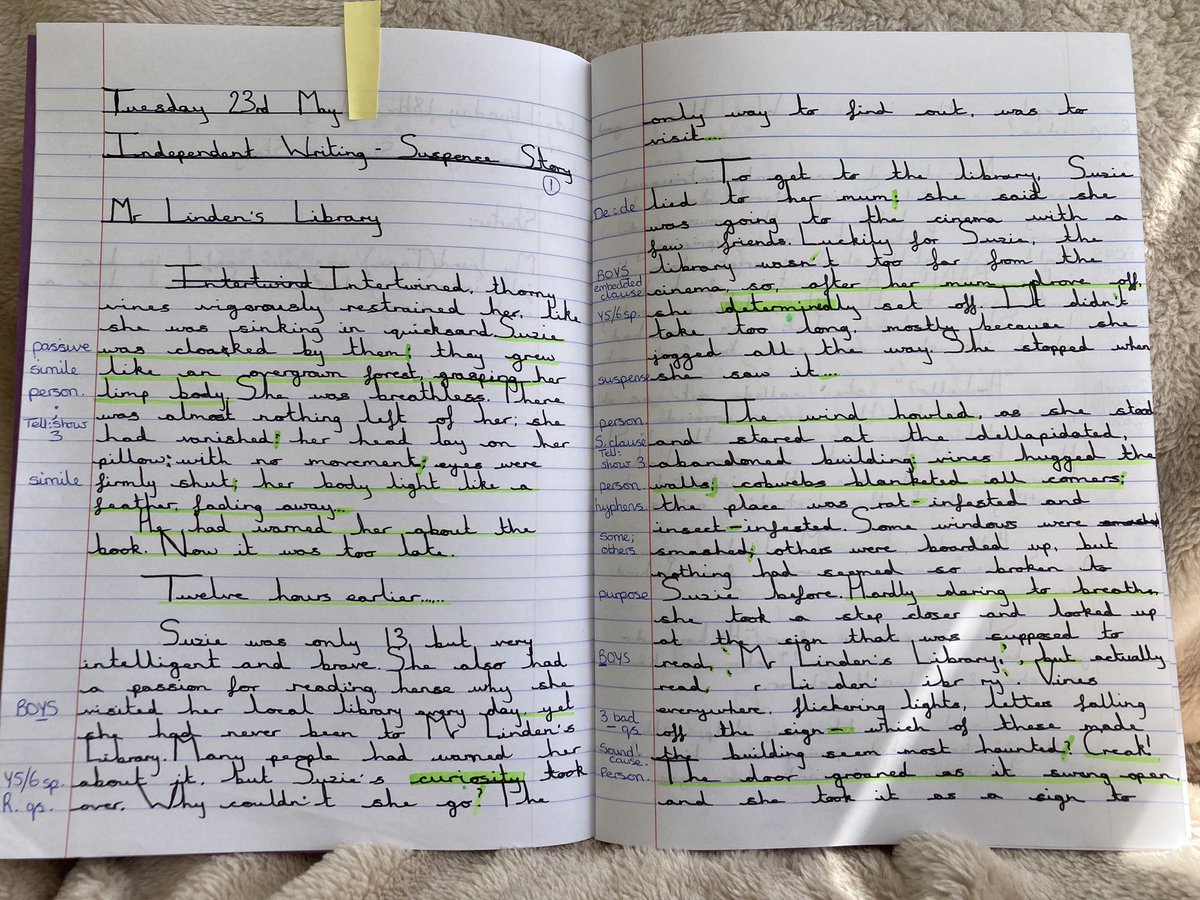 Tuesday 23rd May
Independent Writing - Suspence Story
1
Mr Linden's Library
Intertwind Intertwined, thorny
vines vigorously restrained her, like
she was sinking in quicksand. Suzie
passive was cloaked by them; they grew
simile like an overgrown forest, grasping her
person. limp body. She was breathless. There
; was almost nothing left of her; she
Tell: show 3 had vanished: her head lay on her
pillow; with no movement; eyes were
simile firmly shut; her body light like a
feather, fading away...
He had warned her about the
book. Now it was too late.
Twelve hours earlier......
Suzie was only 13 but very
intelligent and brave. She also had
a passion for reading, hense why she
BOYS visited her local library every day, yet
she had never been to Mr Linden's
Library. Many people had warned her
Y5/6 sp. about it, but Suzie's curiosity took
R. qs. over. Why couldn't she go? The
only way to find out, was to
visit...
To get to the library, Suzie
De:de lied to her mum: she said she
was going to the cinema with a
few friends. Luckily for Suzie, the
BOYS library wasn't too far from the
embedded clause cinema, so, after her mum drove off,
Y5/6 sp. she determinedly set off. It didn't
take too long, mostly because she
jogged all the way. She stopped when
suspense she saw it....
person The wind howled, as she stood
S. clause and stared at the dellapidated,
Tell: show 3 abandoned building: vines hugged the
person. walls; cobwebs blanketed all corners;
hyphens the place was rat-infested and
insect-infested. Some windows were
Some; others smashed; others were boarded up, but
nothing had seemed so broken to
purpose Suzie before. Hardly daring to breathe,
she took a step closer and looked up
at the sign that was supposed to
BOYS read, 'Mr Linden's Library,' but actually
read, ' r. Li den' ibr ry'. Vines
everywhere, flickering lights, letters falling
3 bad qs off the sign - which of these made
Sound! cause. the building seem most haunted? Creak!
Person. The door groaned as it swung open,
and she took it as a sign to